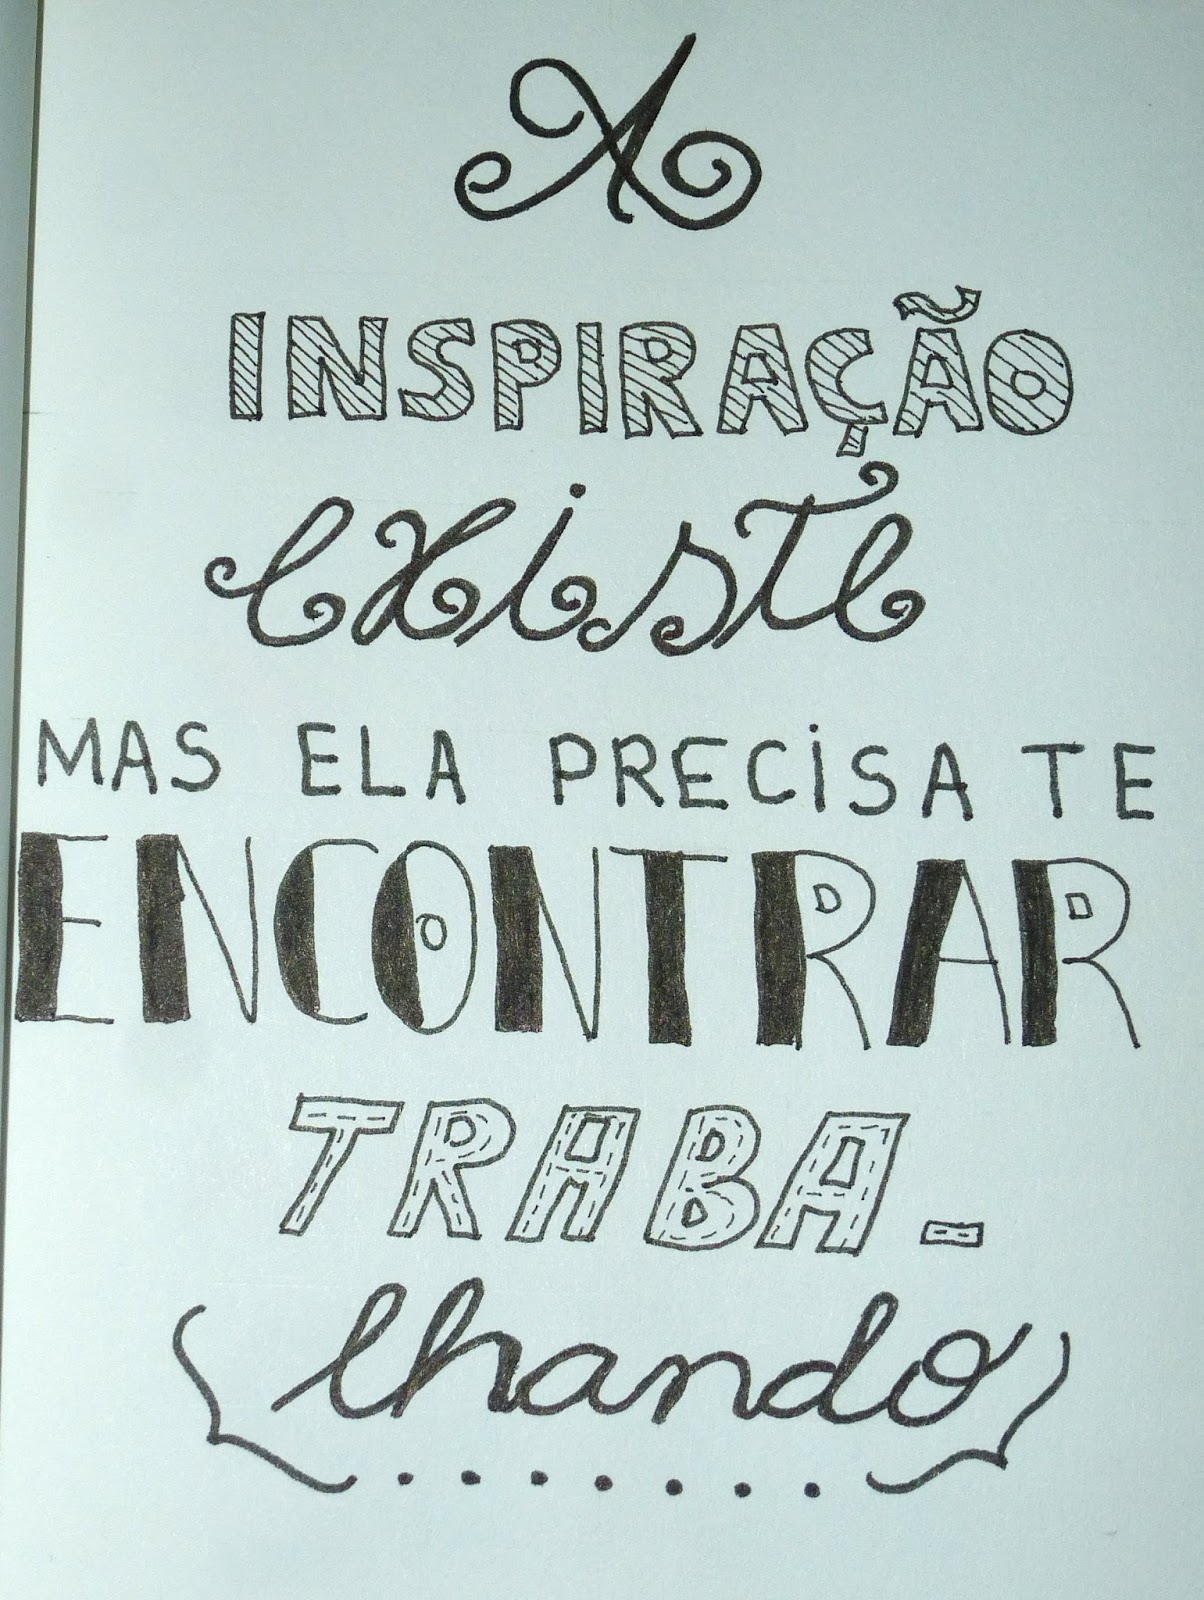 A
INSPIRAÇÃO
existe
MAS ELA PRECISA TE
ENCONTRAR
TRABA-
lhando